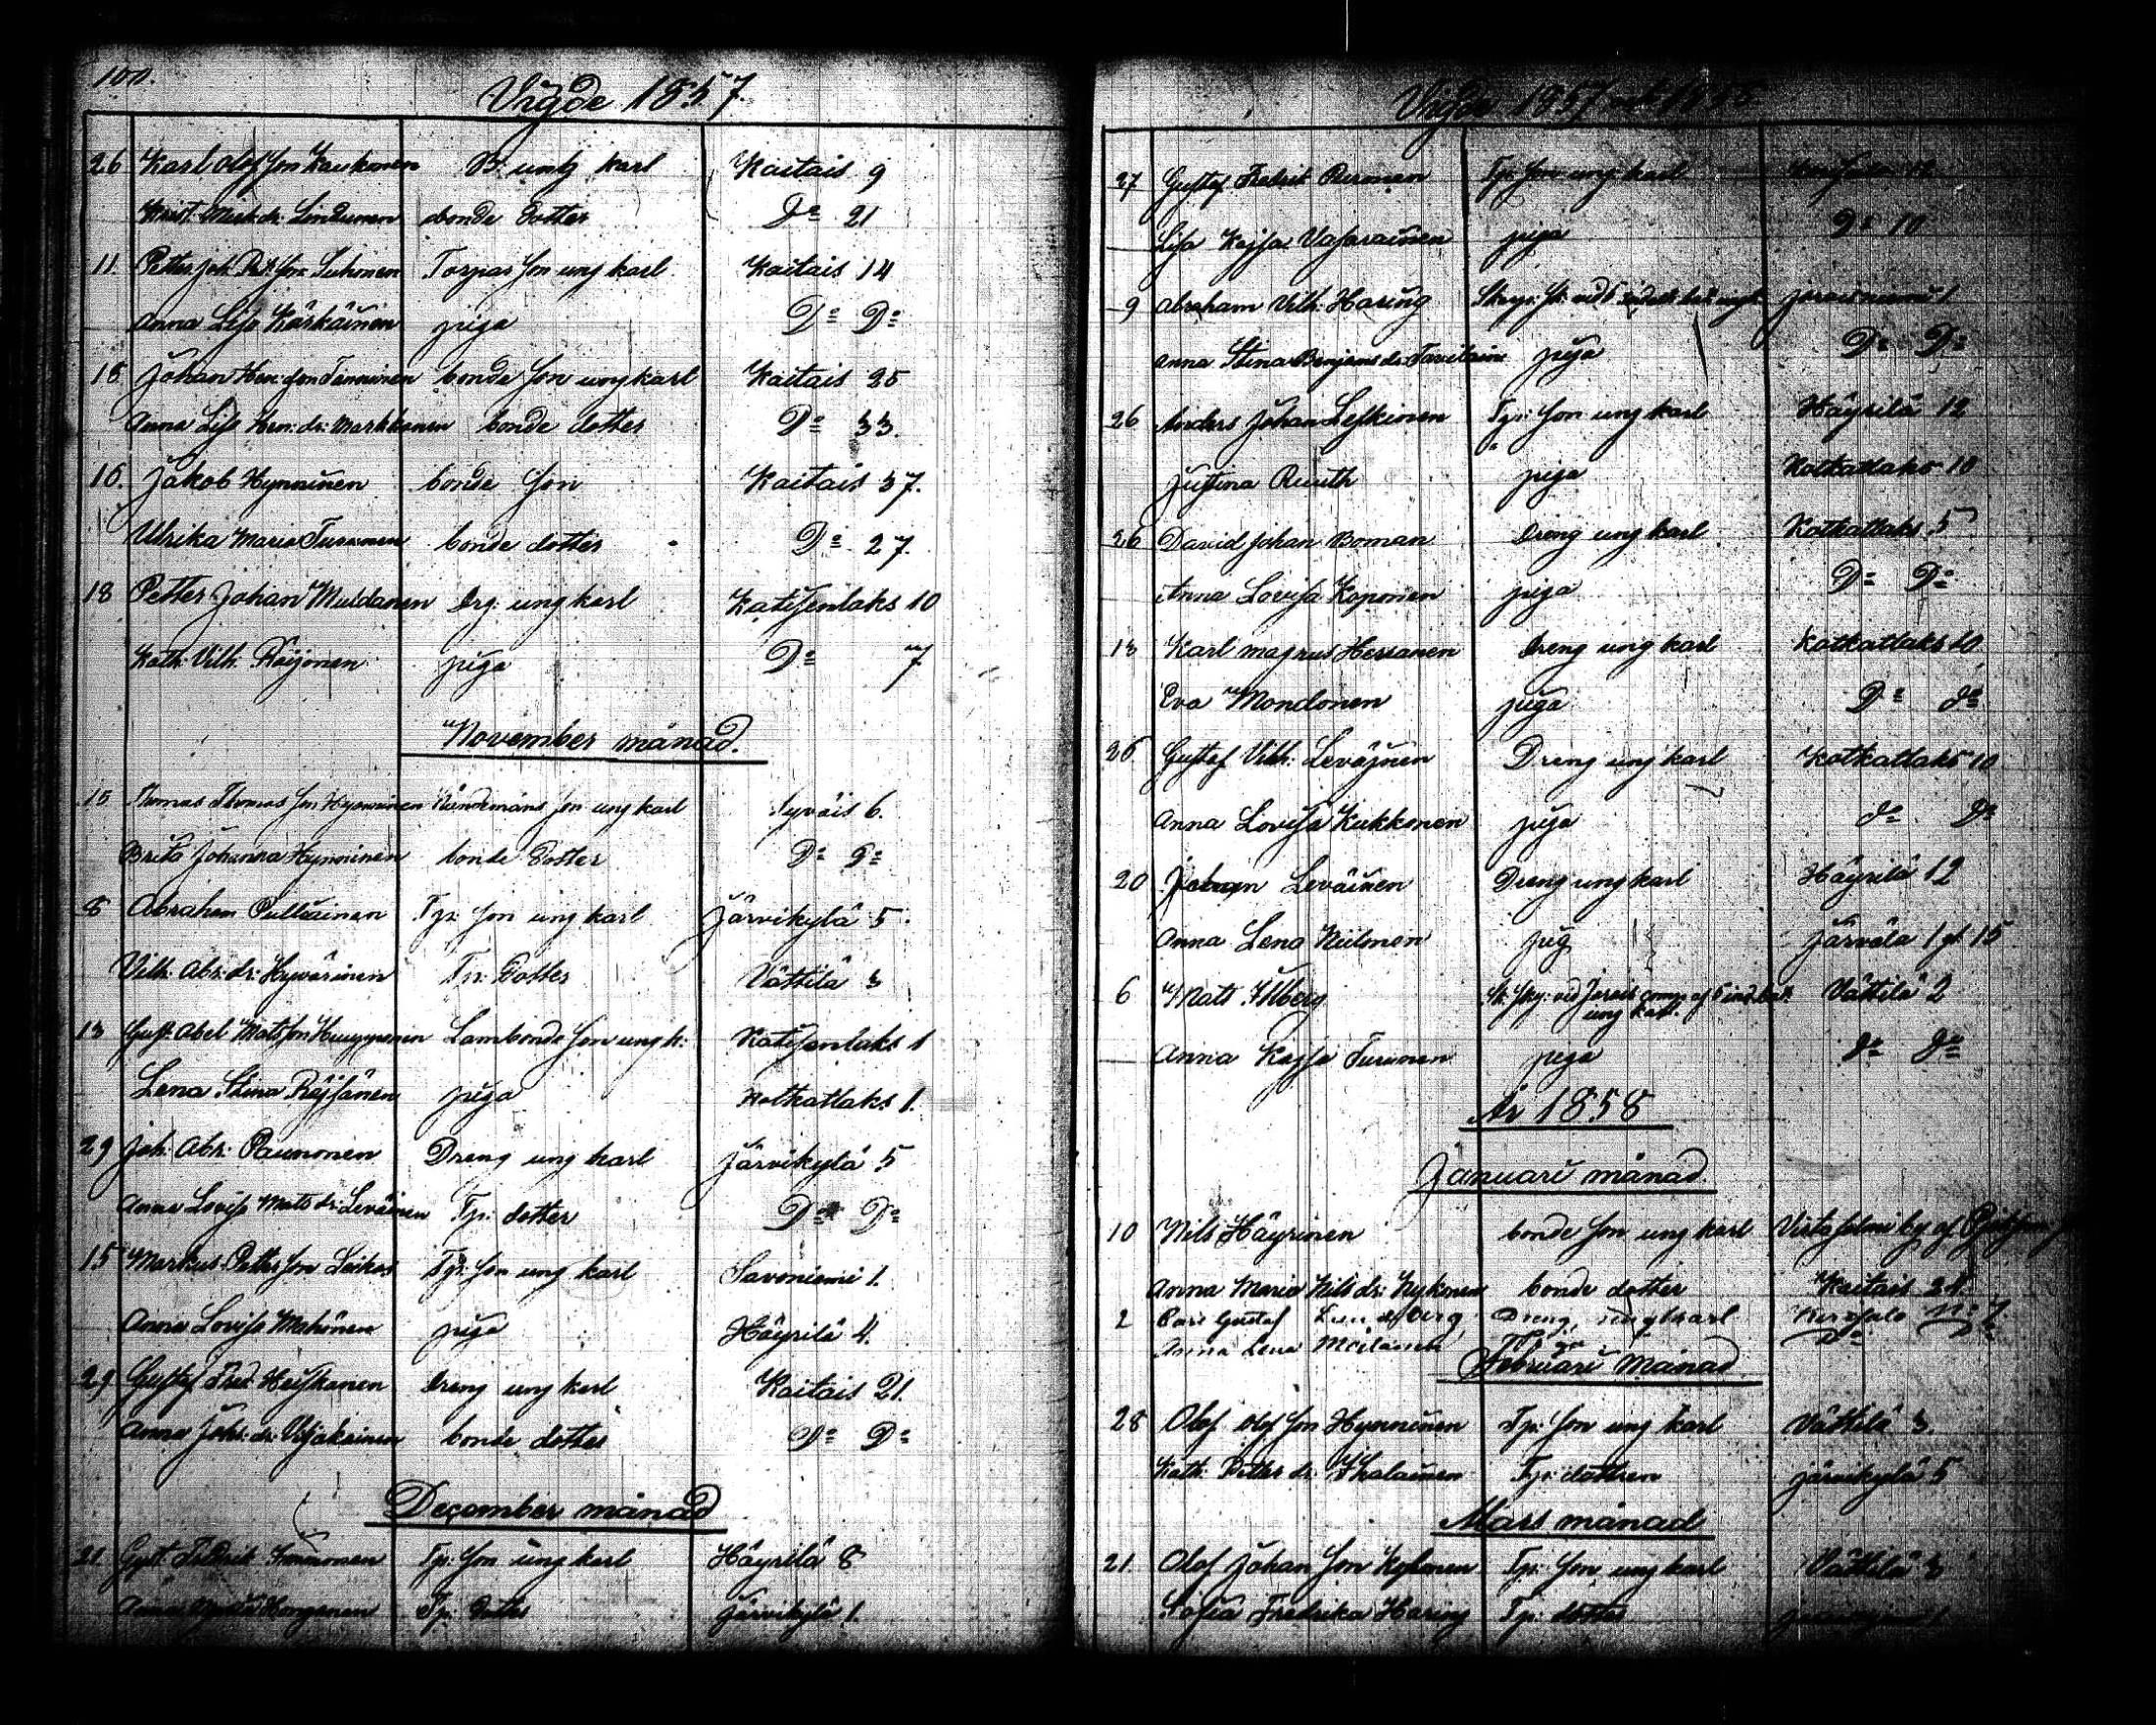 100.
Vigde 1857.
26 Karl Olof Son Kaukonen B: ung karl Kaitais 9
Krist. Mick. dr: Lindunen bonde dotter Do 21
11. Petter Joh. Pet. Son Luhonen Torpar Son ung karl. Kaitais 14
Anna Lisa Kärkäinen piga Do Do
18 Johan Hen: Son Tanninen bonde Son ung karl Kaitais 25
Anna Lisa Hen: dr: Markkanen bonde dotter Do 33.
16. Jakob Hynninen bonde Son Kaitais 37.
Ulrika Maria Turunen bonde dotter Do 27.
18 Petter Johan Muldanen Drg: ung karl Katisenlaks 10
Kath: Vilh. Räijonen piga Do 7
November månad.
15 Thomas Thomas Son Hynninen Nämdemans Son ung karl Syväis 6.
Brita Johanna Hynninen bonde dotter Do Do
8 Abraham Pulliainen Tp: Son ung karl Järvikylä 5.
Vilh: Abr: dr: Hyvärinen Tp: Dotter Vättilä 3
13 Gust. Abel Mats Son Lambonde Son ung k: Katisenlaks 1
Lena Stina Räisänen piga Kotkatlaks 1.
29 Joh: Abr: Paunonen Dreng ung karl Järvikylä 5
Anna Lovisa Mats dr: Leväinen Tp: dotter Do Do
15 Markus Petter Son Leikas Tp: Son ung karl Savoniemi 1.
Anna Lovisa Mahönen piga Häyrilä 4.
29 Gustaf Fred. Heiskanen Dreng ung karl Kaitais 21.
Anna Joh: dr: Viljakainen bonde dotter Do Do
December månad
21 Gust. Fredrik Tp: Son ung karl Häyrilä 8
Anna Maria Tp: Dotter Järvikylä 1.
Vigde 1857 och 1858
27 Gustaf Fredrik Puronen Tp: Son ung karl 12
Lisa Kajsa Vasarainen piga Do 10
9 Abraham Vilh: Haring 1
Anna Stina Benjams dr: Tavitain piga Do Do
26 Anders Johan Leskinen Tp: Son ung karl Häyrilä 12
Justina Ruuth piga Kotkatlaks 10
26 David Johan Boman Dreng ung karl Kotkatlaks 5
Anna Lovisa Koponen piga Do Do
13 Karl Magnus Herranen Dreng ung karl Kotkatlaks 20
Eva Mondonen piga Do do
26 Gustaf Vilh: Leväinen Dreng ung karl Kotkatlaks 10
Anna Lovisa Kukkonen piga do Do
20 Johan Leväinen Dreng ung karl Häyrilä 12
Anna Lena Niilonen pig Järvälä 1 15
6 Mats Ilberg Vättilä 2
ung karl.
Anna Kajsa Turunen piga do Do
År 1858
Januari månad.
10 Nils Häyrinen bonde Son ung karl Virtasalmi by af
Anna Maria Nils dr: Nykänen bonde dotter Kaitais 24.
2 Carl Gustaf Dreng, ungkarl No 7
Anna Lena Moilanen Do
Februari månad
28 Olof Olof Son Hynninen Tp: Son ung karl Vättilä 3.
Kath: Petter dr: Ihalainen Tp: dottren Järvikylä 5
Mars månad
21. Olof Johan Son Kohonen Tp: Son ung karl Vättilä 3
Sofia Fredrika Haring Tp: dotter